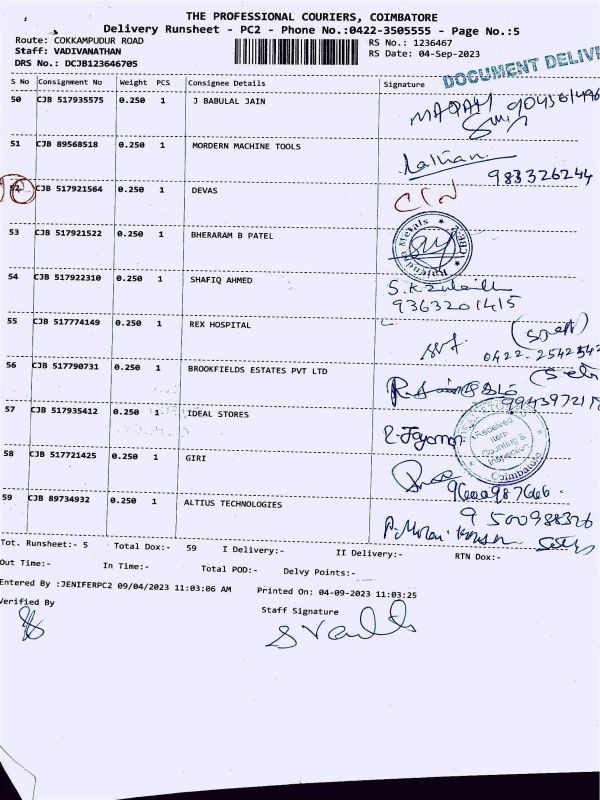 THE PROFESSIONAL COURIERS, COIMBATORE
Delivery Runsheet - PC2 - Phone No.:0422-3505555 - Page No.:5
Route: COKKAMPUDUR ROAD
RS No.: 1236467
Staff: VADIVANATHAN
RS Date: 04-Sep-2023
DRS No.: DCJB123646705
DOCUMENT DELIV
S No Consignment No Weight PCS Consignee Details Signature
50 CJB 517935575 0.250 1 J BABULAL JAIN
51 CJB 89568518 0.250 1 MORDERN MACHINE TOOLS
983326244
52 CJB 517921564 0.250 1 DEVAS
53 CJB 517921522 0.250 1 BHERARAM B PATEL
Metals
54 CJB 517922310 0.250 1 SHAFIQ AHMED
9363201415
55 CJB 517774149 0.250 1 REX HOSPITAL
0422-2542542
56 CJB 517790731 0.250 1 BROOKFIELDS ESTATES PVT LTD
57 CJB 517935412 0.250 1 IDEAL STORES
Received
Item
Counting &
Inspection
Coimbatore
58 CJB 517721425 0.250 1 GIRI
9600987666
59 CJB 89734932 0.250 1 ALTIUS TECHNOLOGIES
9500988326
Tot. Runsheet:- 5 Total Dox:- 59 I Delivery:- II Delivery:- RTN Dox:-
Out Time:- In Time:- Total POD:- Delvy Points:-
Entered By :JENIFERPC2 09/04/2023 11:03:06 AM Printed On: 04-09-2023 11:03:25
Verified By
Staff Signature